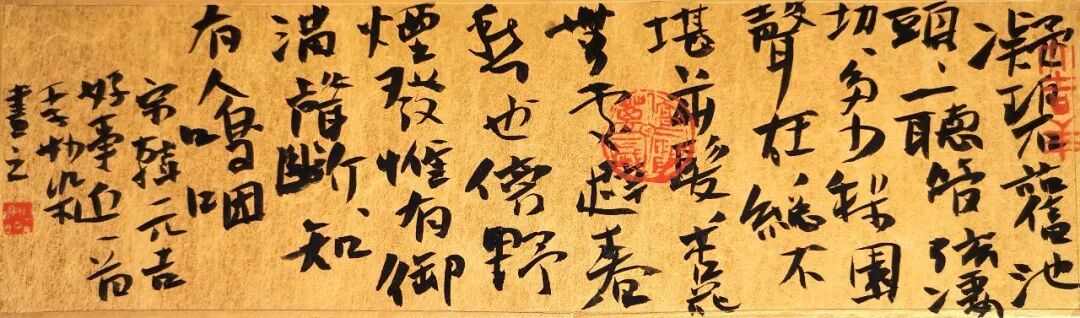 凝碧舊池
頭、一聽管弦凄
切、多少梨園
聲在、總不
堪華髮、杏花
無處避春
愁也傍野
煙發惟有御
溝聲斷、知
有人嗚咽
宋韓元吉
好事近一首
書之